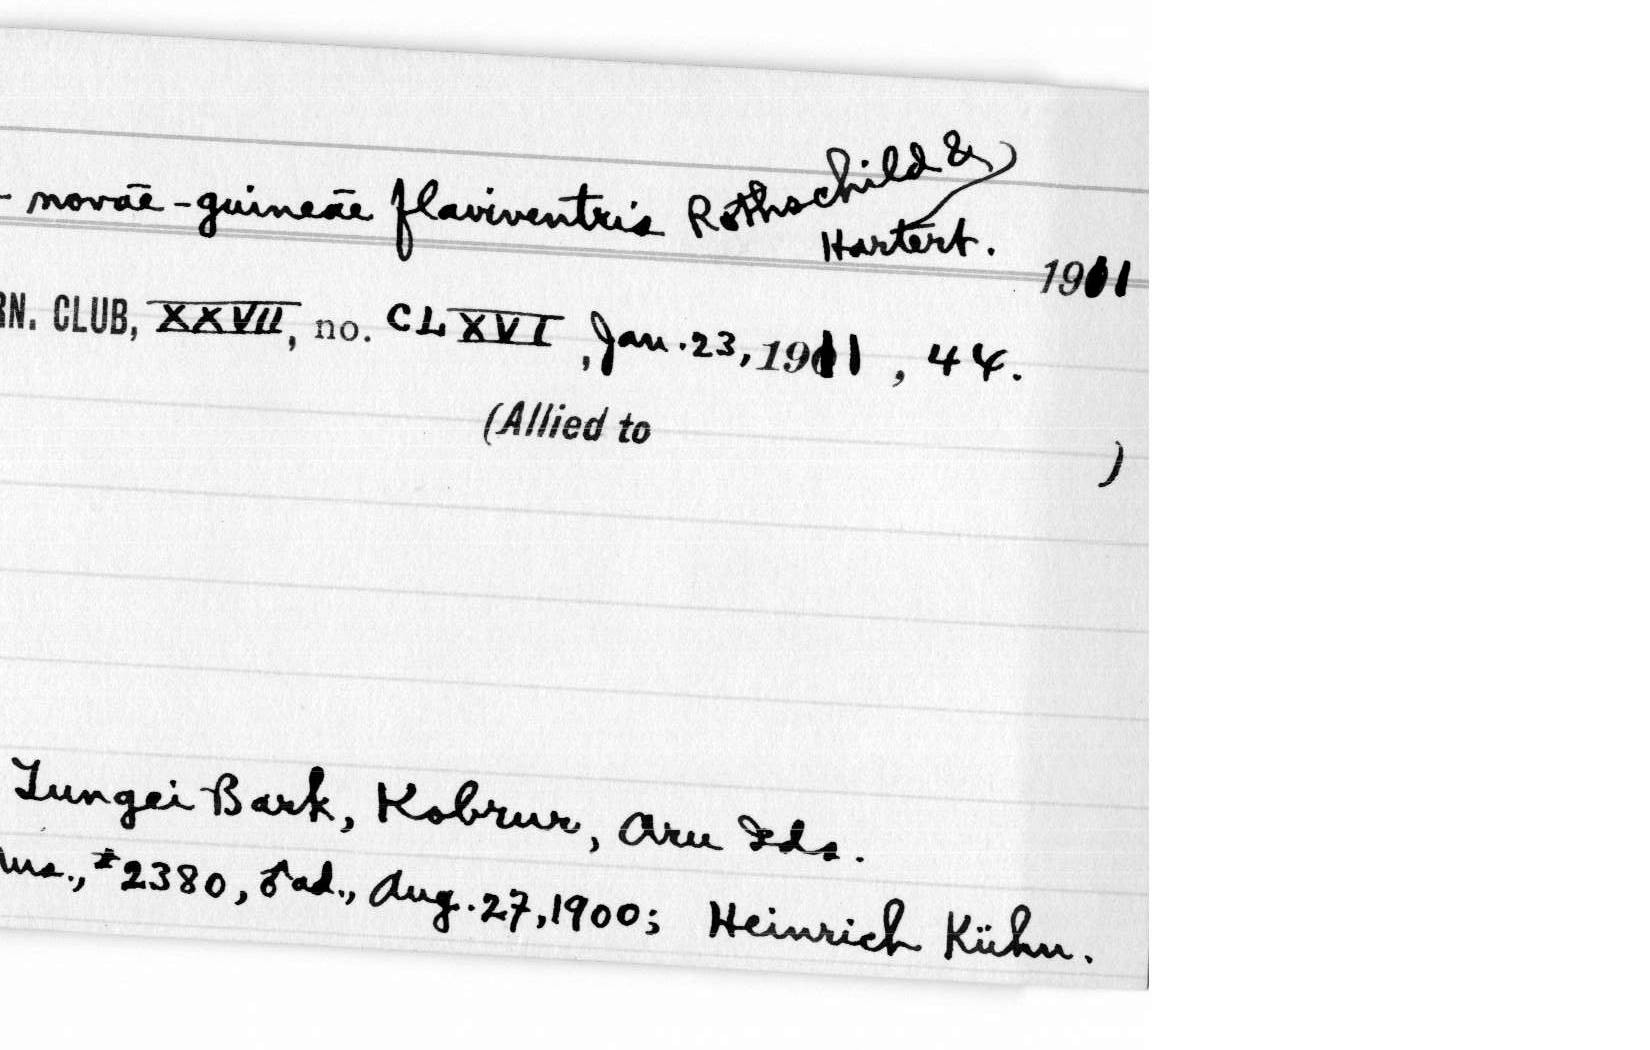 - novāē-guineāē flaviventris Rothschild &
Hartert.
1911
RN. CLUB, XXVII, no. CLXVI, Jan. 23, 1911, 44.
(Allied to
)
Tungei Bark, Kobrur, Aru Ids.
Mus., #2380, ♂ ad., Aug. 27, 1900; Heinrich Kühn.